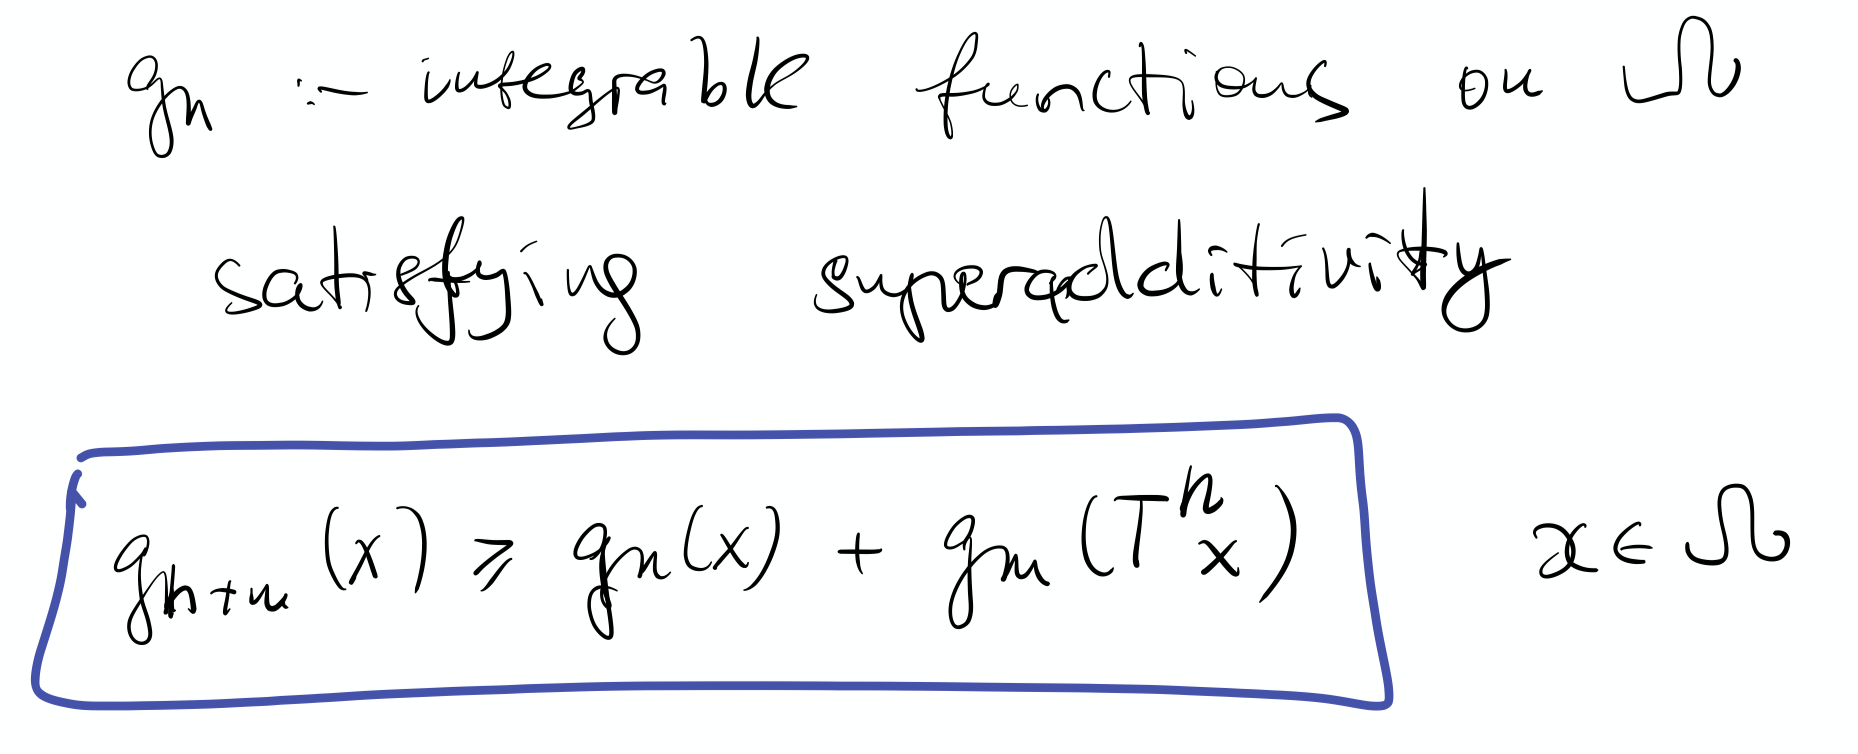 gₙ :- integrable functions on Ω
satisfying superadditivity
gₙ₊ₘ (x) ⩾ gₙ(x) + gₘ (Tⁿx) x ∈ Ω